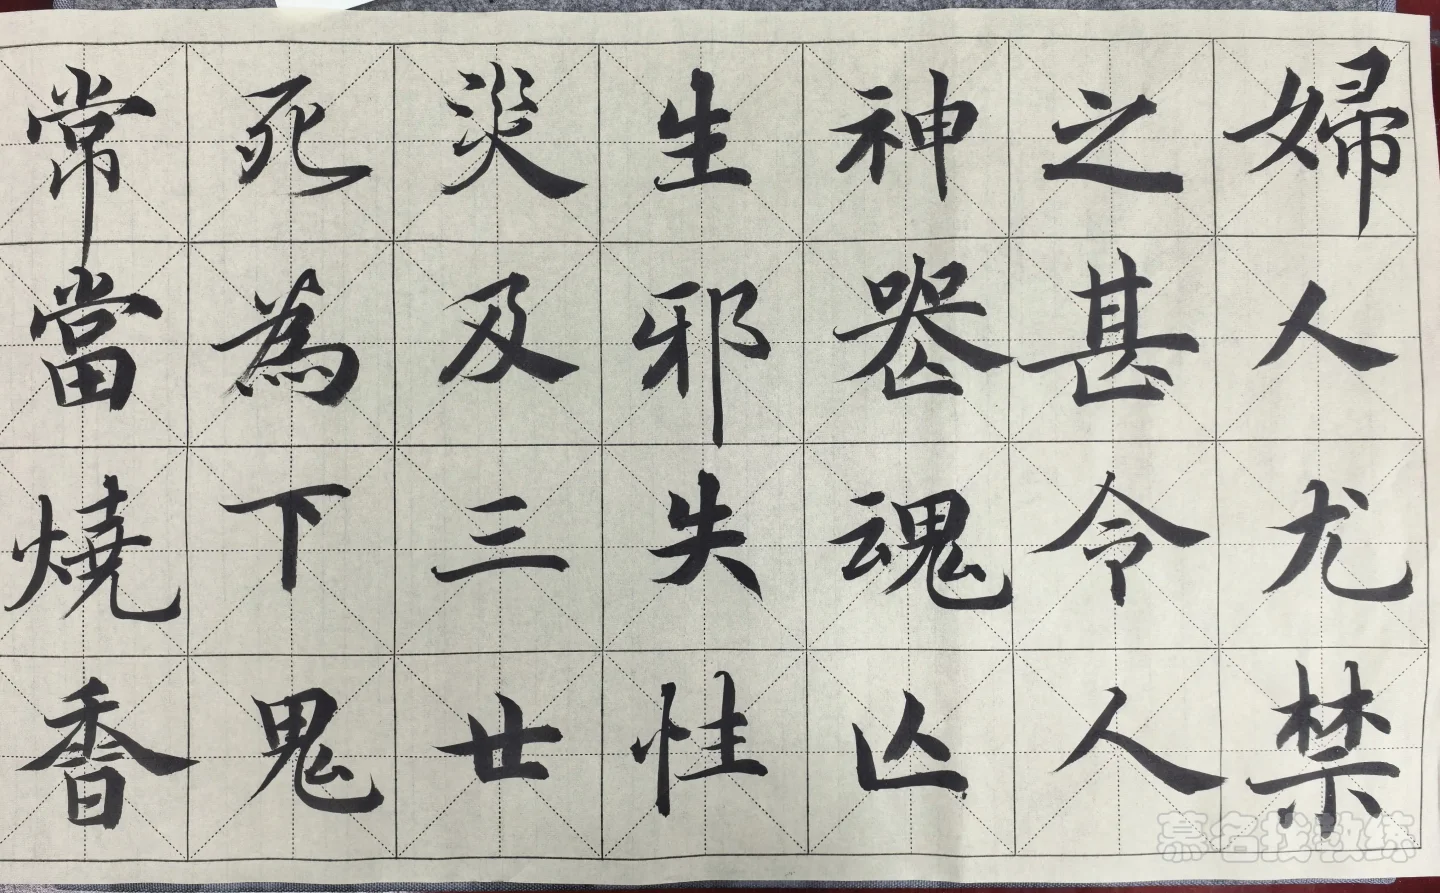 婦人尤禁
之甚令人
神喪魂亾
生邪失性
災及三世
死為下鬼
常當燒香
慕名找教练